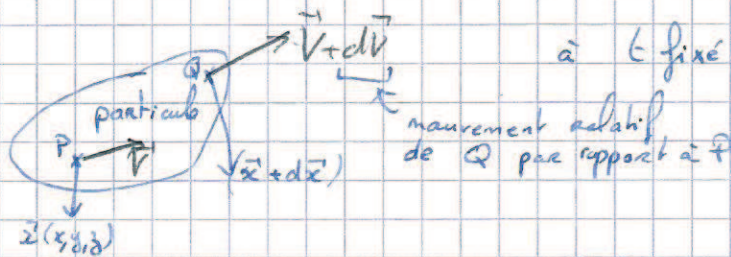 V⃗+dV⃗
à t fixé
Q
particule
mouvement relatif
de Q par rapport à P
P
V⃗
(x⃗+dx⃗)
x⃗(x,y,z)